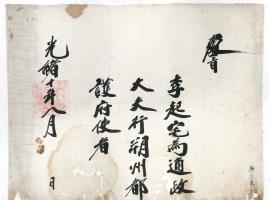 敎旨
李起宅爲通政
大夫行朔州都
護府使者
光緖十年八月　日